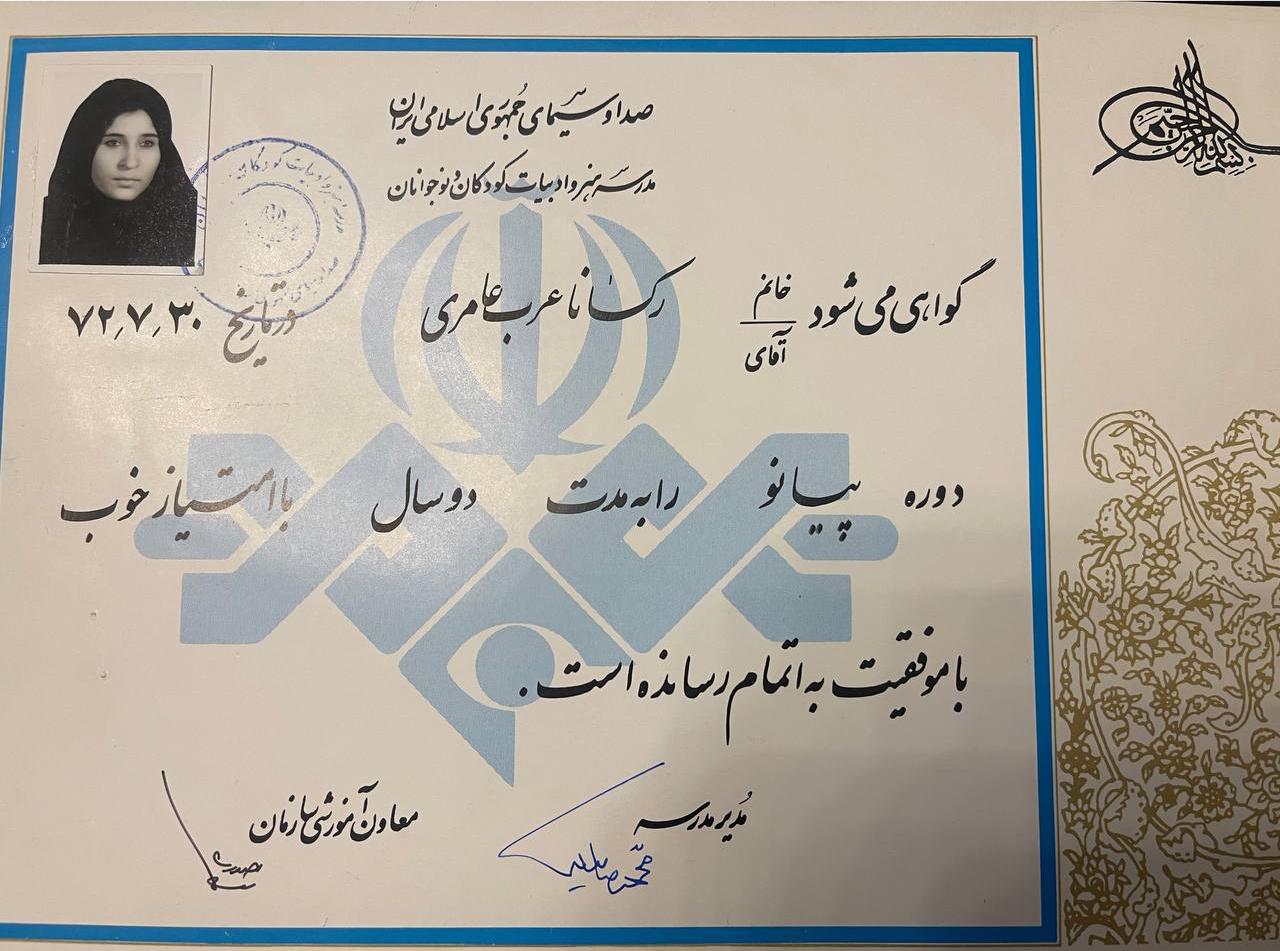 بسم الله الرحمن الرحیم
صدا و سیمای جمهوری اسلامی ایران
مدرسه هنر و ادبیات کودکان و نوجوانان
گواهی می شود خانم آقای رکسانا عرب عامری در تاریخ ۷۲٫۷٫۳۰
دوره پیانو را به مدت دو سال با امتیاز خوب
با موفقیت به اتمام رسانده است.
مُدیر مدرسه
معاون آموزشی سازمان